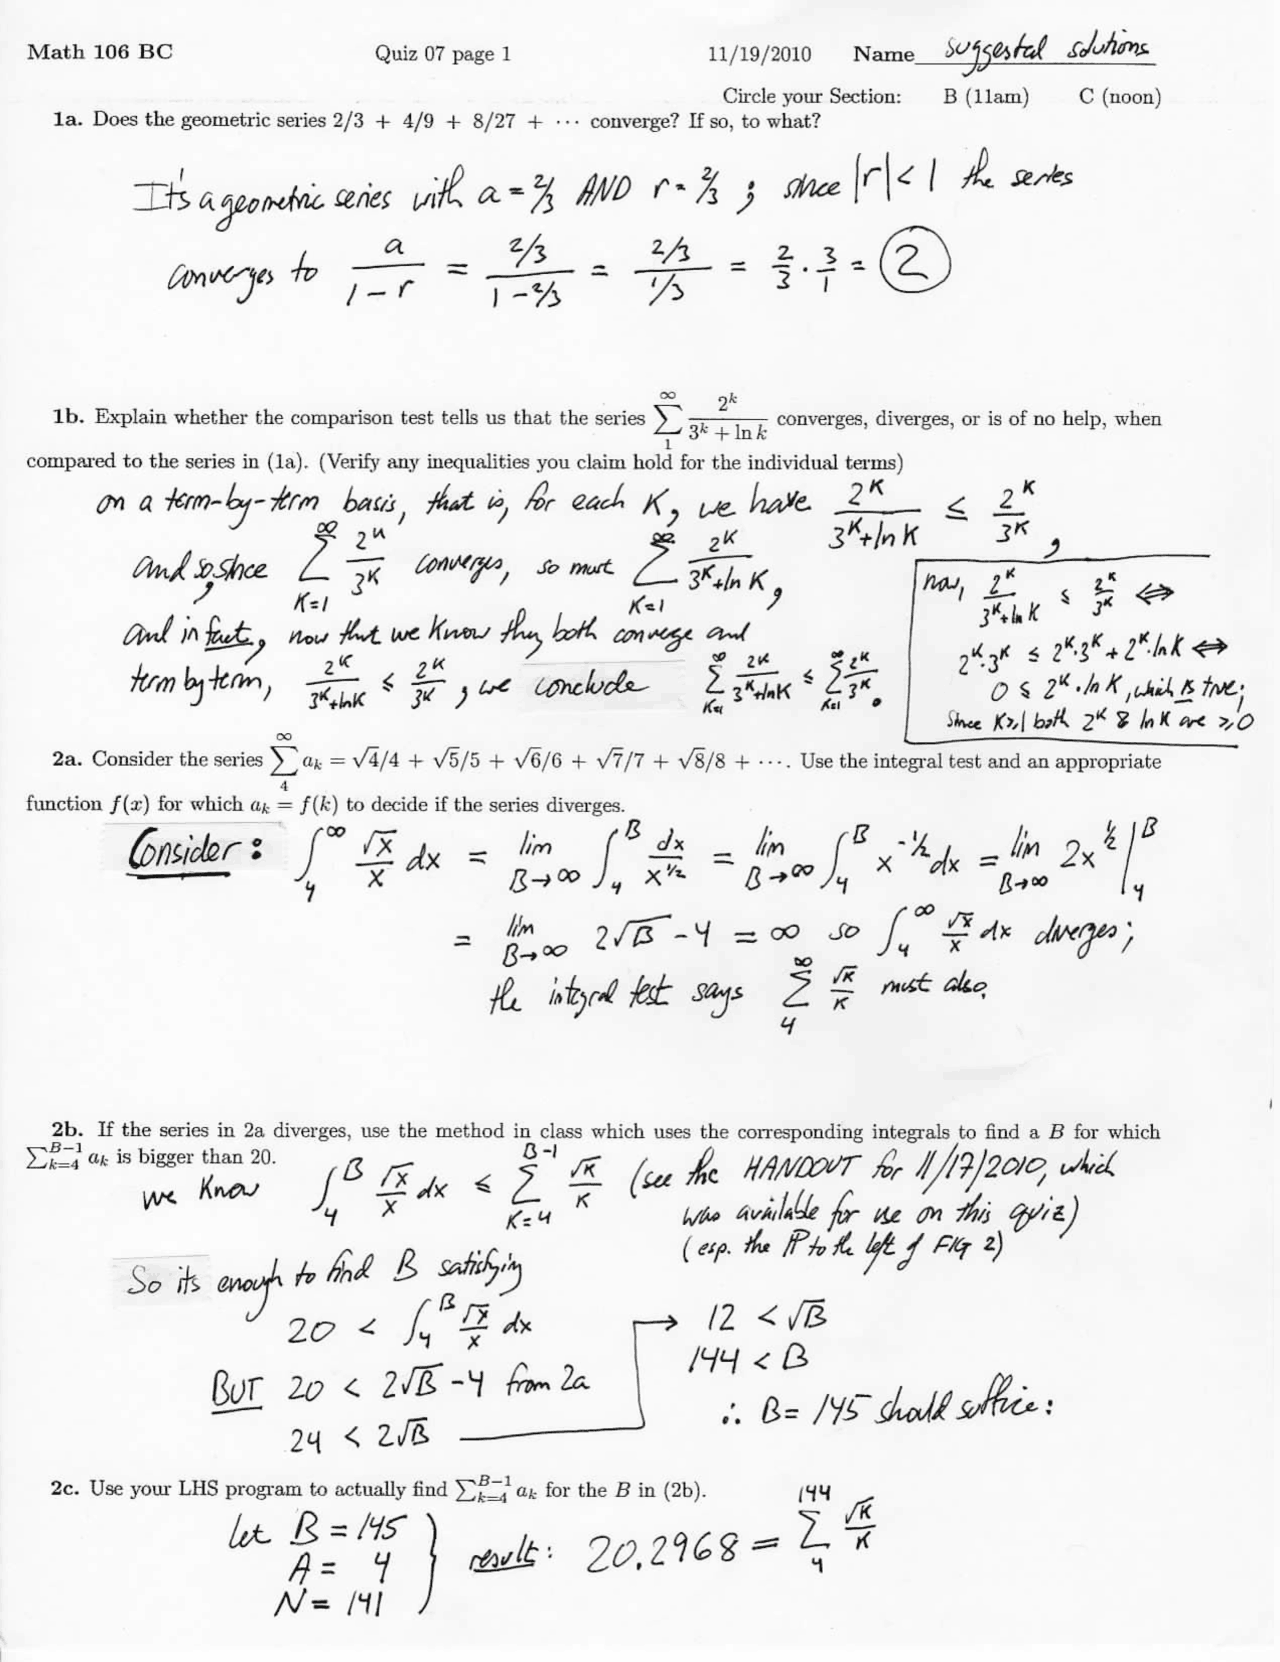 Math 106 BC Quiz 07 page 1 11/19/2010 Name suggested solutions
Circle your Section: B (11am) C (noon)
1a. Does the geometric series 2/3 + 4/9 + 8/27 + ⋯ converge? If so, to what?
It's a geometric series with a = 2/3 AND r = 2/3 ; since |r| < 1 the series
converges to a/(1-r) = (2/3)/(1-2/3) = (2/3)/(1/3) = 2/3 · 3/1 = 2
1b. Explain whether the comparison test tells us that the series ∑_1^∞ 2^k/(3^k + ln k) converges, diverges, or is of no help, when
compared to the series in (1a). (Verify any inequalities you claim hold for the individual terms)
on a term-by-term basis, that is, for each K, we have 2^K/(3^K+ln K) ≤ 2^K/3^K ,
and so, since ∑_{K=1}^∞ 2^K/3^K converges, so must ∑_{K=1}^∞ 2^K/(3^K+ln K),
and in fact, now that we know they both converge and
term by term, 2^K/(3^K+ln K) ≤ 2^K/3^K , we conclude ∑_{K=1}^∞ 2^K/(3^K+ln K) ≤ ∑_{K=1}^∞ 2^K/3^K .
now, 2^K/(3^K+ln K) ≤ 2^K/3^K ⇔
2^K·3^K ≤ 2^K·3^K + 2^K·ln K ⇔
0 ≤ 2^K·ln K, which is true;
Since K≥1 both 2^K & ln K are ≥0
2a. Consider the series ∑_4^∞ a_k = √4/4 + √5/5 + √6/6 + √7/7 + √8/8 + ⋯. Use the integral test and an appropriate
function f(x) for which a_k = f(k) to decide if the series diverges.
Consider: ∫_4^∞ √x/x dx = lim_{B→∞} ∫_4^B dx/x^{1/2} = lim_{B→∞} ∫_4^B x^{-1/2} dx = lim_{B→∞} 2x^{1/2} |_4^B
= lim_{B→∞} 2√B - 4 = ∞ so ∫_4^∞ √x/x dx diverges;
the integral test says ∑_4^∞ √K/K must also.
2b. If the series in 2a diverges, use the method in class which uses the corresponding integrals to find a B for which
∑_{k=4}^{B-1} a_k is bigger than 20.
we know ∫_4^B √x/x dx ≤ ∑_{K=4}^{B-1} √K/K (see the HANDOUT for 11/17/2010, which
was available for use on this quiz)
(esp. the ¶ to the left of FIG 2)
So its enough to find B satisfying
20 < ∫_4^B √x/x dx
BUT 20 < 2√B - 4 from 2a
24 < 2√B
→ 12 < √B
144 < B
∴ B = 145 should suffice:
2c. Use your LHS program to actually find ∑_{k=4}^{B-1} a_k for the B in (2b).
let B = 145
A = 4
N = 141
} result: 20.2968 = ∑_4^144 √K/K